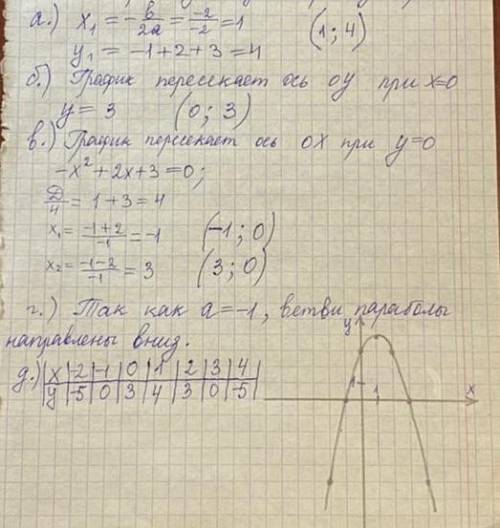 а.) x₁ = -b/2a = -2/-2 = 1 (1; 4)
y₁ = -1+2+3 = 4
б.) График пересекает ось OY при x=0
y = 3 (0; 3)
в.) График пересекает ось OX при y=0
-x² + 2x + 3 = 0;
Д/4 = 1 + 3 = 4
x₁ = -1+2/-1 = -1 (-1; 0)
x₂ = -1-2/-1 = 3 (3; 0)
г.) Так как a = -1, ветви параболы
направлены вниз.
д.) x | -2 | -1 | 0 | 1 | 2 | 3 | 4
y | -5 | 0 | 3 | 4 | 3 | 0 | -5
y
1
1
x